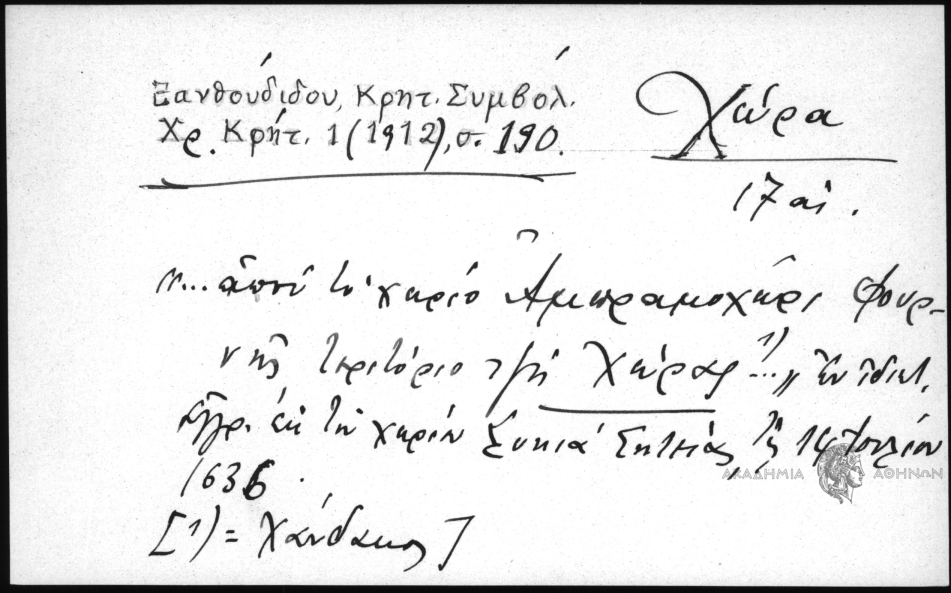 Ξανθουδίδου, Κρητ. Συμβόλ.
Χρ. Κρήτ. 1 (1912), σ. 190.
Χώρα
17 αἰ.
"... ἀπού το χωριό Ἀμπραμοχῶρι Φουρ-
νῆς τεριτόριο τζῆ Χώρας 1)..." Ἐν ἰδιωτ.
ἐγγρ. ἐκ τῶν χωρίων Συκιά Σητείας τῆς 14 Ἰουλίου
1636.
[1) = Χάνδακος]
ΑΚΑΔΗΜΙΑ ΑΘΗΝΩΝ